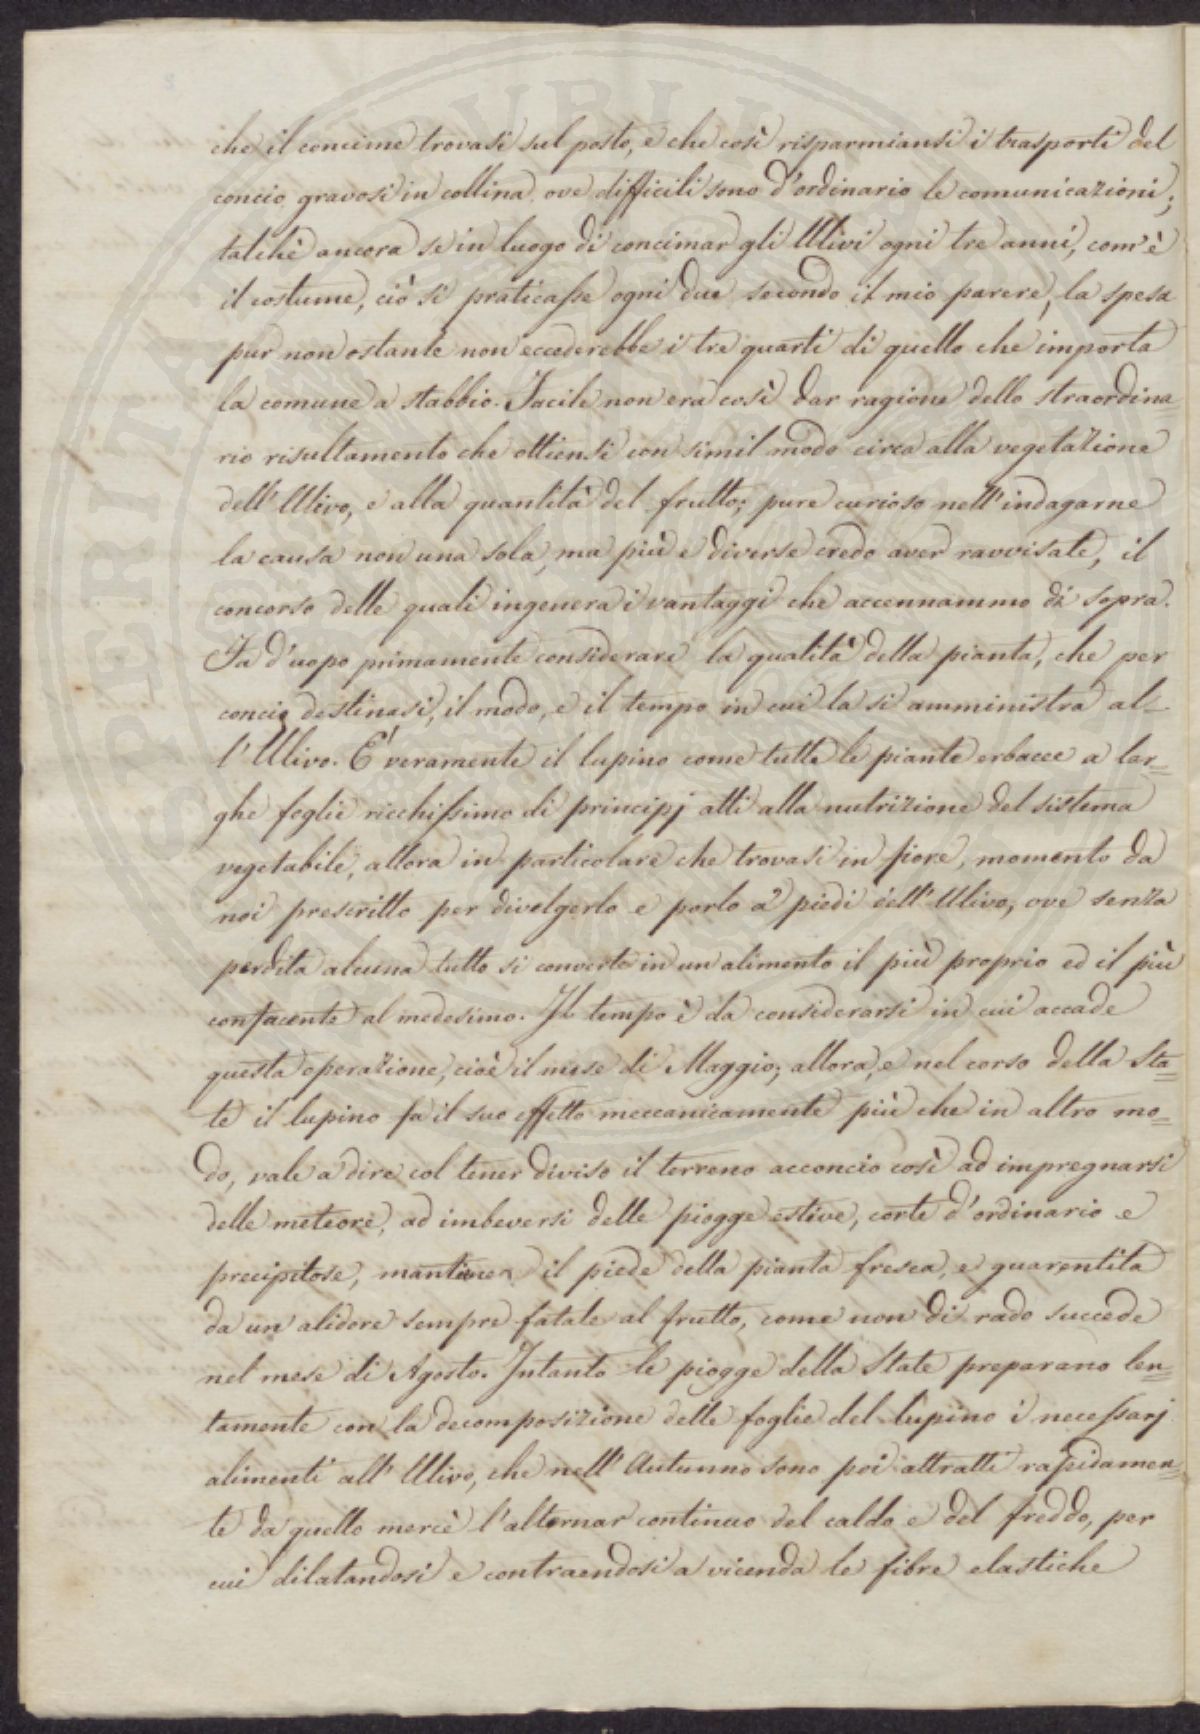 che il concime trovasi sul posto, e che così risparmiansi i trasporti del
concio gravosi in collina ove difficili sono d'ordinario le comunicazioni;
talchè ancora se in luogo di concimar gli Ulivi ogni tre anni, com'è
il costume, ciò si praticasse ogni due secondo il mio parere, la spesa
pur non ostante non eccederebbe i tre quarti di quello che importa
la comune a stabbio. Facile non era così dar ragione dello straordina=
rio risultamento che ottiensi con simil modo circa alla vegetazione
dell'Ulivo, e alla quantità del frutto; pure curioso nell'indagarne
la causa non una sola, ma più e diverse credo aver ravvisate, il
concorso delle quali ingenera i vantaggi che accennammo di sopra.
Fa d'uopo primamente considerare la qualità della pianta, che per
concio destinasi, il modo, e il tempo in cui la si amministra al-
l'Ulivo. E' veramente il lupino come tutte le piante erbacee a lar=
ghe foglie ricchissimo di principj atti alla nutrizione del sistema
vegetabile, allora in particolare che trovasi in fiore, momento da
noi prescritto per divelgerlo e porlo a' piedi dell'Ulivo, ove senza
perdita alcuna tutto si converte in un alimento il più proprio ed il più
confacente al medesimo. Il tempo è da considerarsi in cui accade
questa operazione, cioè il mese di Maggio; allora, e nel corso della Sta=
te il lupino fa il suo effetto meccanicamente più che in altro mo=
do, vale a dire col tener diviso il terreno acconcio così ad impregnarsi
delle meteore, ad imbeversi delle piogge estive, corte d'ordinario e
precipitose, mantiene il piede della pianta fresca, e guarentita
da un alidore sempre fatale al frutto, come non di rado succede
nel mese di Agosto. Intanto le piogge della State preparano len=
tamente con la decomposizione delle foglie del lupino i necessarj
alimenti all'Ulivo, che nell'Autunno sono poi attratti rapidamen=
te da quello mercè l'alternar continuo del caldo e del freddo, per
cui dilatandosi e contraendosi a vicenda le fibre elastiche